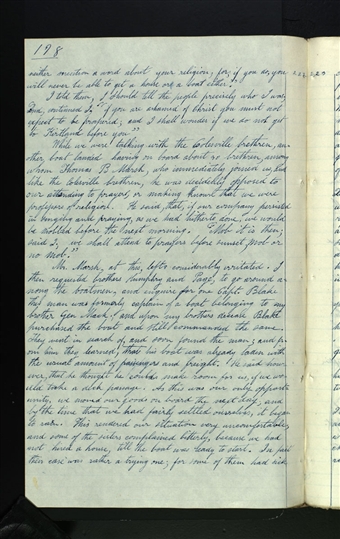 198
neither mention a word about your religion, for, if you do, you
will never be able to get a house or a boat either."
I told them, I should tell the people precisely who I was;
and, continued I, "if you are ashamed of Christ you must not
expect to be prospered; and I shall wonder if we do not get
to Kirtland before you."
While we were talking with the Colesville brethren, an-
other boat landed having on board about 30 brethren, among
whom Thomas B. Marsh, who immediately joined us, and
like the Colesville brethren, he was decidedly opposed to
our attention to prayer or making known that we were
professors of religion. He said, that, if our company persisted
in singing and praying, as we had hitherto done, we would
be mobbed before the next morning. "Mob it is then,
said I; we shall attend to prayer before sunset mob or
no mob."
Mr. Marsh, at this, left considerably irritated. I
then requested brothers Humphry and Page, to go around a-
mong the boatmen, and inquire for one Capt. Blake
this man was formerly captain of a boat belonging to my
brother Gen. Mack; and upon my brothers decease Blake
purchased the boat and still commanded the same.
They went in search of, and soon found the man; and fr-
om him they learned, that his boat was already laden with
the usual amount of passengers and freight. He said how-
ever, that he thought he could make room for us, if we wo-
uld take a deck passage. As this was our only opport-
unity, we moved our goods on board the next day; and
by the time that we had fairly settled ourselves, it began
to rain. This rendered our situation very uncomfortable,
and some of the sisters complained bitterly, because we had
not hired a house, till the boat was ready to start. In fact
their case was rather a trying one; for some of them had sick